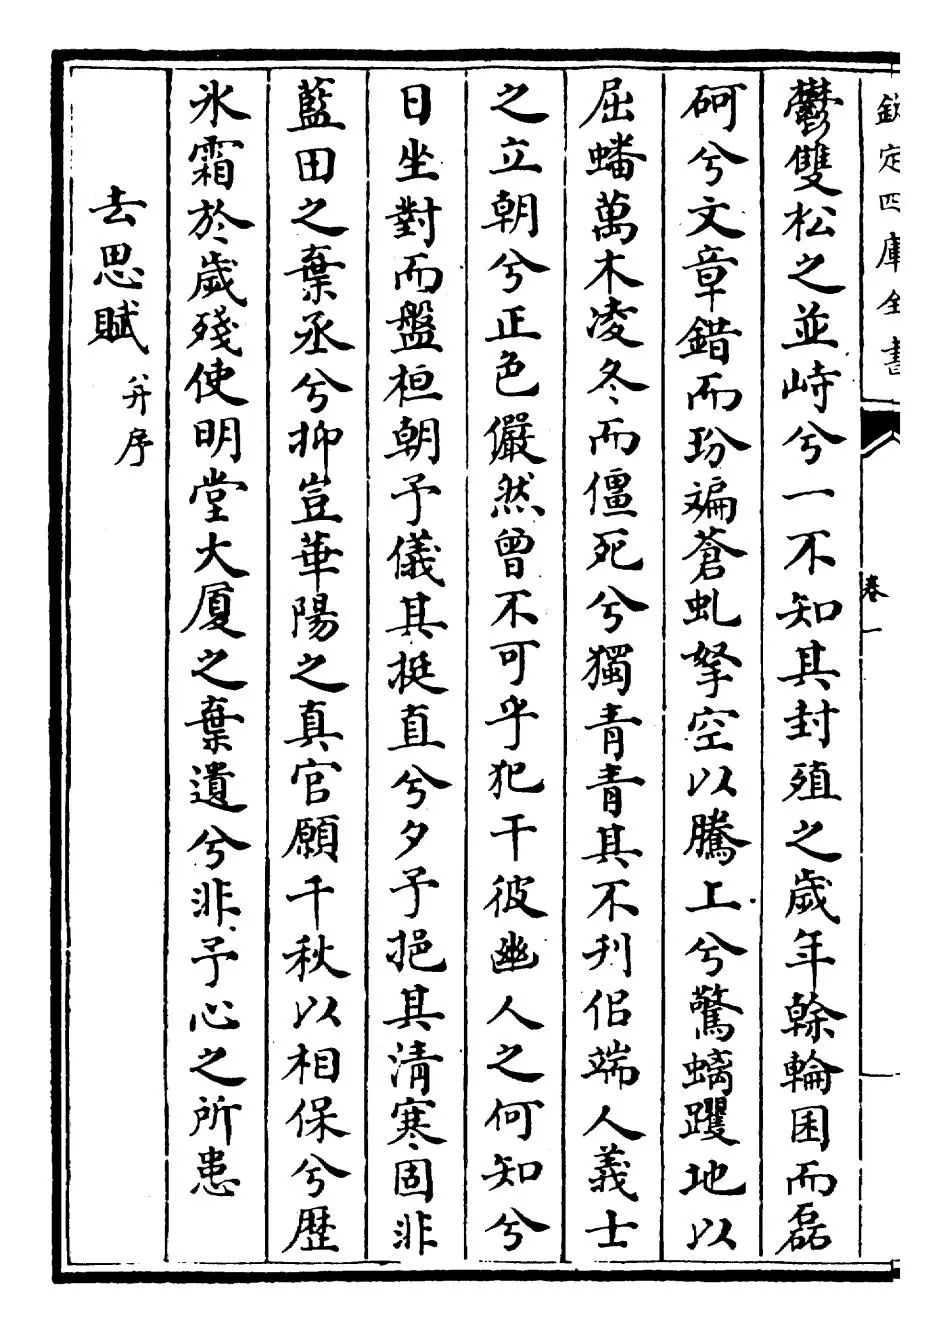 欽定四庫全書
卷一
鬱雙松之並峙兮一不知其封殖之歲年榦輪囷而磊
砢兮文章錯而玢斒蒼虬拏空以騰上兮驚螭躩地以
屈蟠萬木凌冬而僵死兮獨青青其不刋侣端人義士
之立朝兮正色儼然曾不可乎犯干彼幽人之何知兮
日坐對而盤桓朝予儀其挺直兮夕予挹其清寒固非
藍田之棄丞兮抑豈華陽之真官願千秋以相保兮歴
氷霜於歲殘使明堂大厦之棄遺兮非予心之所患
去思賦并序